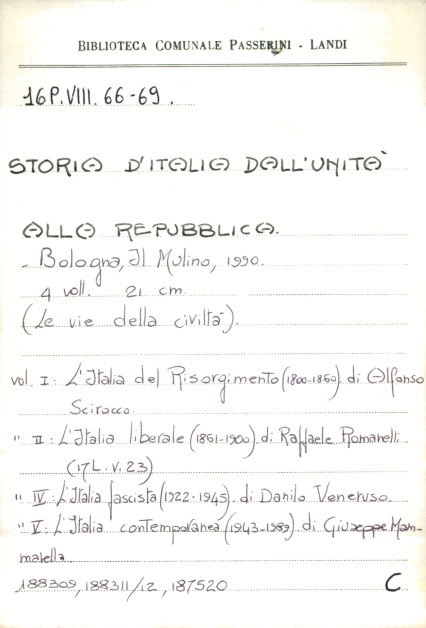 BIBLIOTECA COMUNALE PASSERINI - LANDI
16 P. VIII. 66-69.
STORIA D'ITALIA DALL'UNITÀ
ALLA REPUBBLICA.
- Bologna, Il Mulino, 1990.
4 voll. 21 cm.
(Le vie della civiltà).
vol. I: L'Italia del Risorgimento (1800-1860). di Alfonso
Scirocco.
" II: L'Italia liberale (1861-1900). di Raffaele Romanelli.
(17 L. V. 23)
" IV: L'Italia fascista (1922-1945). di Danilo Veneruso.
" V: L'Italia contemporanea (1943-1989). di Giuseppe Mam-
marella.
188309, 188311/12, 187520 C